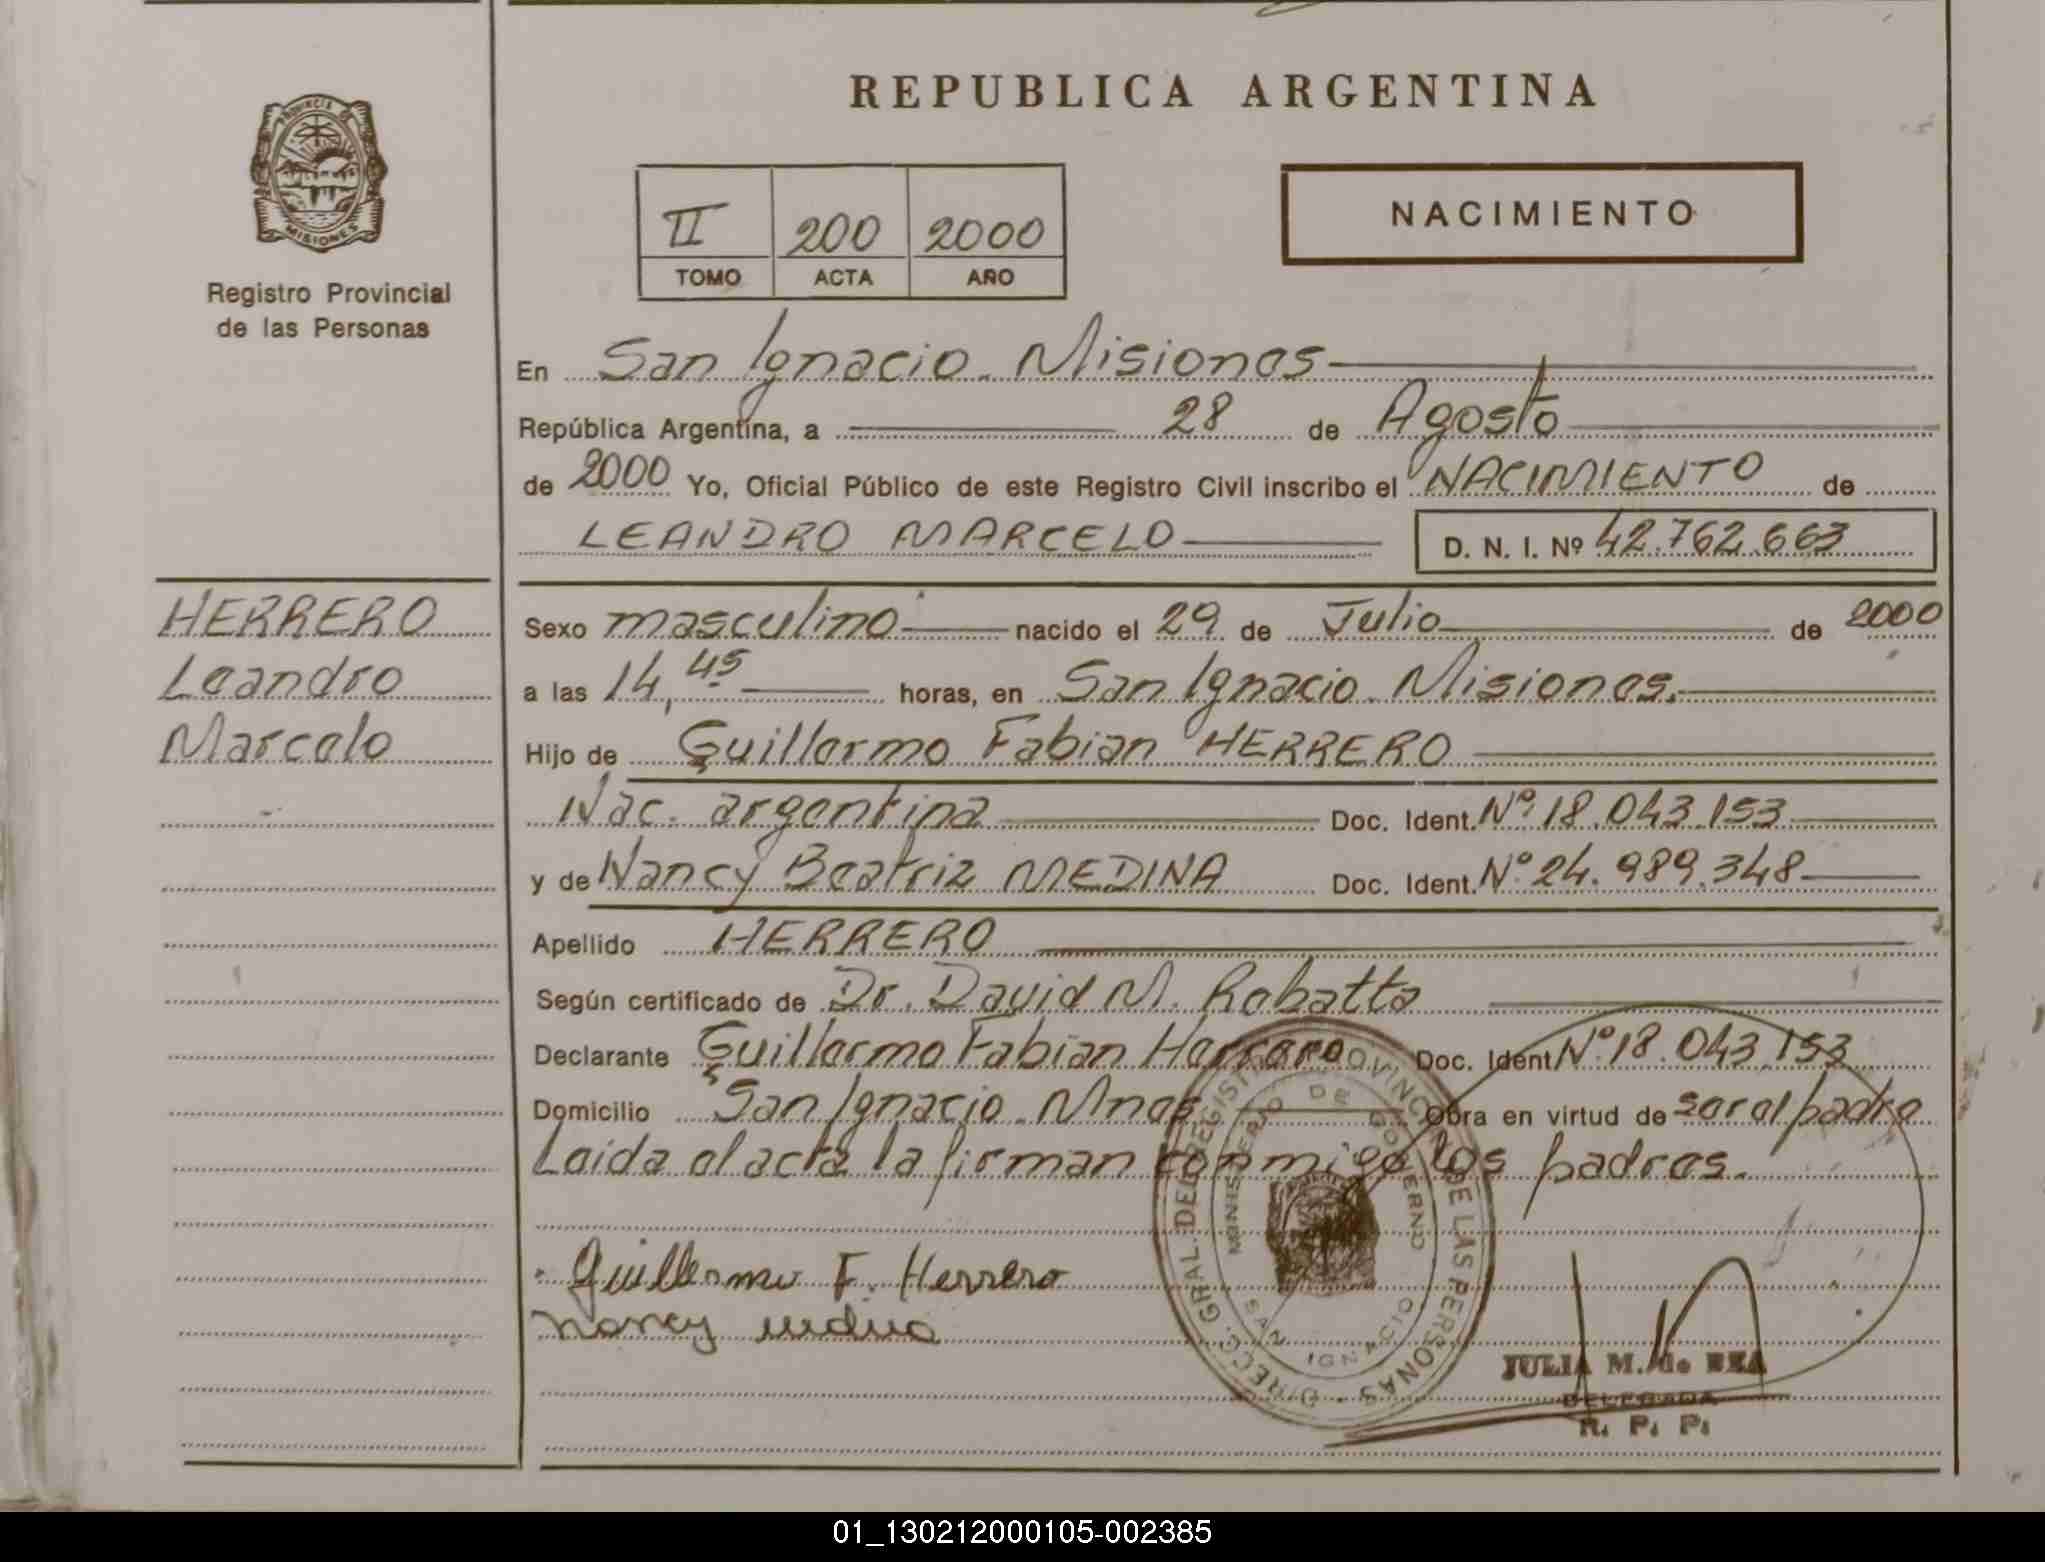 REPUBLICA ARGENTINA
PROVINCIA DE
MISIONES
Registro Provincial
de las Personas
II 200 2000
TOMO ACTA AÑO
NACIMIENTO
En San Ignacio. Misiones
República Argentina, a 28 de Agosto
de 2000 Yo, Oficial Público de este Registro Civil inscribo el NACIMIENTO de
LEANDRO MARCELO D. N. I. Nº 42.762.663
HERRERO
Leandro
Marcelo
Sexo masculino nacido el 29 de Julio de 2000
a las 14,45 horas, en San Ignacio. Misiones.
Hijo de Guillermo Fabian HERRERO
Nac. argentina Doc. Ident. Nº 18.043.153
y de Nancy Beatriz MEDINA Doc. Ident. Nº 24.989.348
Apellido HERRERO
Según certificado de Dr. David M. Robatto
Declarante Guillermo Fabian Herrero Doc. Ident. Nº 18.043.153
Domicilio San Ignacio. Mnes Obra en virtud de ser el padre
Leida el acta la firman conmigo los padres.
Guillermo F. Herrero
Nancy Medina
DIRECC. GRAL. DEL REGISTRO PROVINCIAL DE LAS PERSONAS
MINISTERIO DE GOBIERNO
SAN IGNACIO
JULIA M. de REA
DELEGADA
R. P. P.
01_130212000105-002385